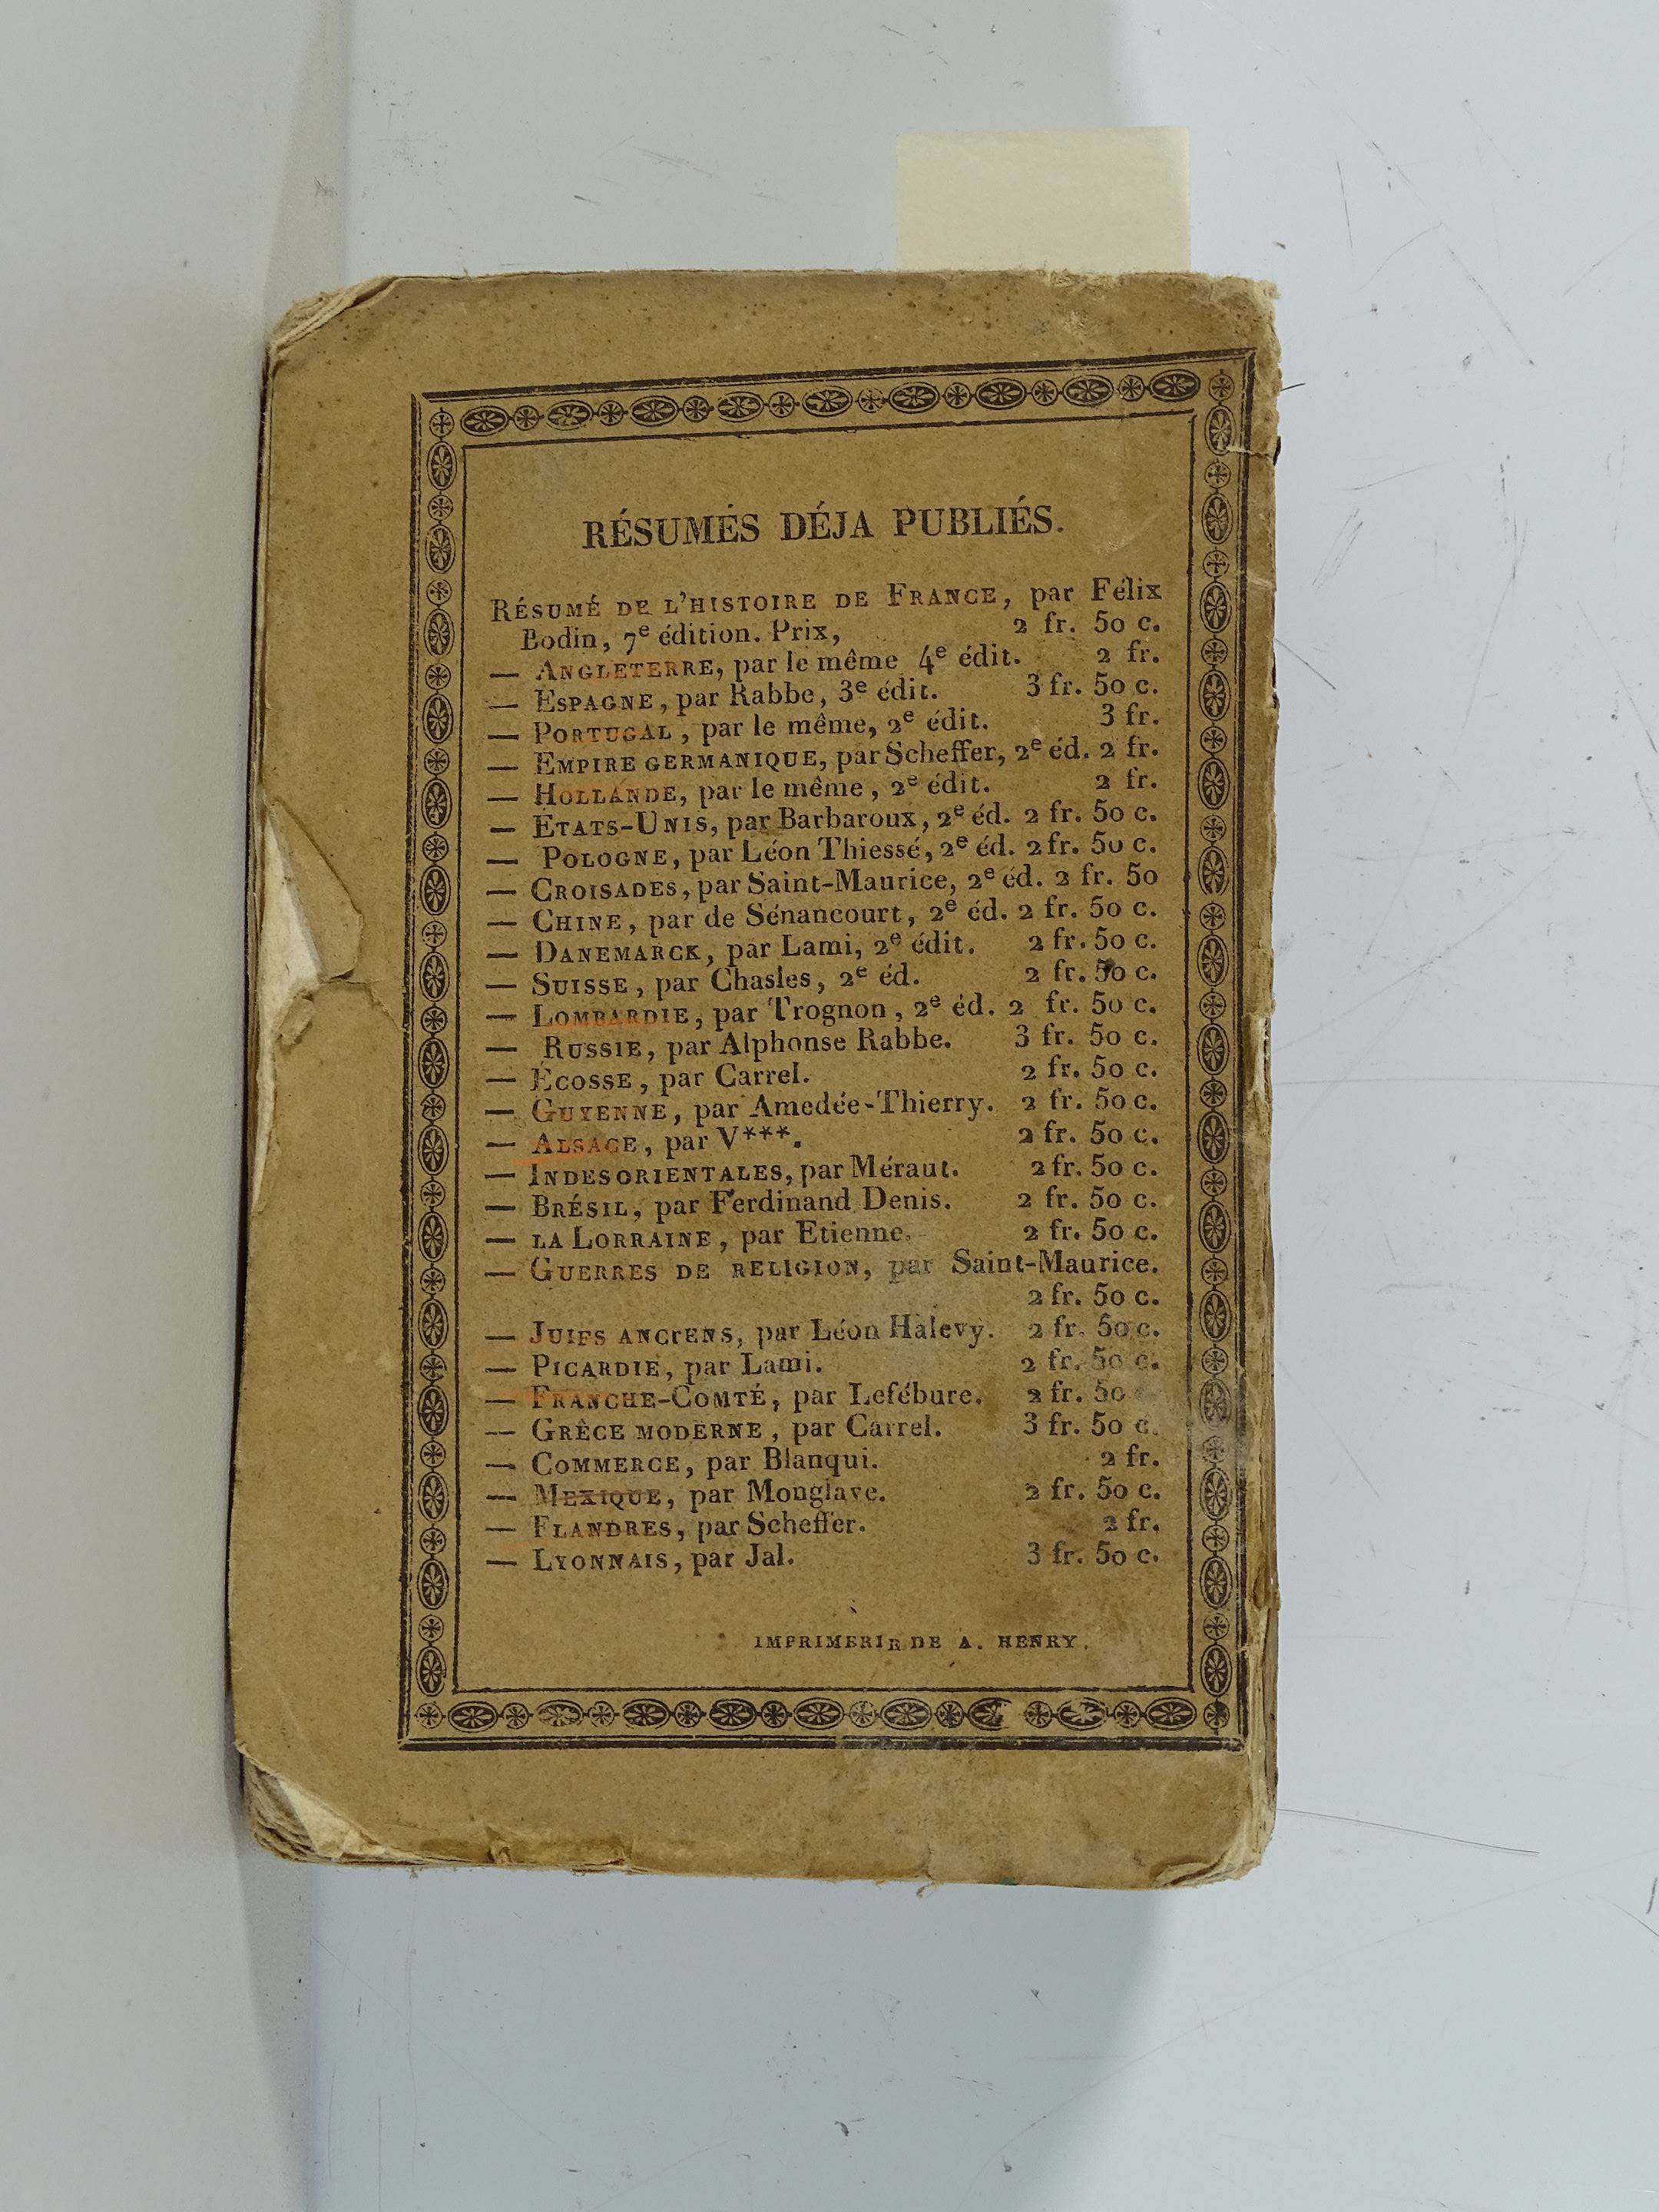 RÉSUMÉS DÉJA PUBLIÉS.
RÉSUMÉ DE L'HISTOIRE DE FRANCE, par Félix
Bodin, 7e édition. Prix, 2 fr. 50 c.
— ANGLETERRE, par le même 4e édit. 2 fr.
— ESPAGNE, par Rabbe, 3e édit. 3 fr. 50 c.
— PORTUGAL, par le même, 2e édit. 3 fr.
— EMPIRE GERMANIQUE, par Scheffer, 2e éd. 2 fr.
— HOLLANDE, par le même, 2e édit. 2 fr.
— ETATS-UNIS, par Barbaroux, 2e éd. 2 fr. 50 c.
— POLOGNE, par Léon Thiessé, 2e éd. 2 fr. 50 c.
— CROISADES, par Saint-Maurice, 2e éd. 2 fr. 50
— CHINE, par de Sénancourt, 2e éd. 2 fr. 50 c.
— DANEMARCK, par Lami, 2e édit. 2 fr. 50 c.
— SUISSE, par Chasles, 2e éd. 2 fr. 50 c.
— LOMBARDIE, par Trognon, 2e éd. 2 fr. 50 c.
— RUSSIE, par Alphonse Rabbe. 3 fr. 50 c.
— ÉCOSSE, par Carrel. 2 fr. 50 c.
— GUYENNE, par Amedée-Thierry. 2 fr. 50 c.
— ALSACE, par V***. 2 fr. 50 c.
— INDES ORIENTALES, par Méraut. 2 fr. 50 c.
— BRÉSIL, par Ferdinand Denis. 2 fr. 50 c.
— LA LORRAINE, par Etienne. 2 fr. 50 c.
— GUERRES DE RELIGION, par Saint-Maurice.
2 fr. 50 c.
— JUIFS ANCIENS, par Léon Halevy. 2 fr. 50 c.
— PICARDIE, par Lami. 2 fr. 50 c.
— FRANCHE-COMTÉ, par Lefébure. 2 fr. 50
— GRÊCE MODERNE, par Carrel. 3 fr. 50 c.
— COMMERCE, par Blanqui. 2 fr.
— MEXIQUE, par Monglave. 2 fr. 50 c.
— FLANDRES, par Scheffer. 2 fr.
— LYONNAIS, par Jal. 3 fr. 50 c.
IMPRIMERIE DE A. HENRY.